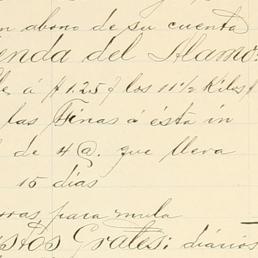 n abono de su cuenta
ienda del Alamo:
á $1.25 los 11½ Kilos
las Finas á ésta in
de 4@. que lleva
15 dias
para mula
Gratis: diarios